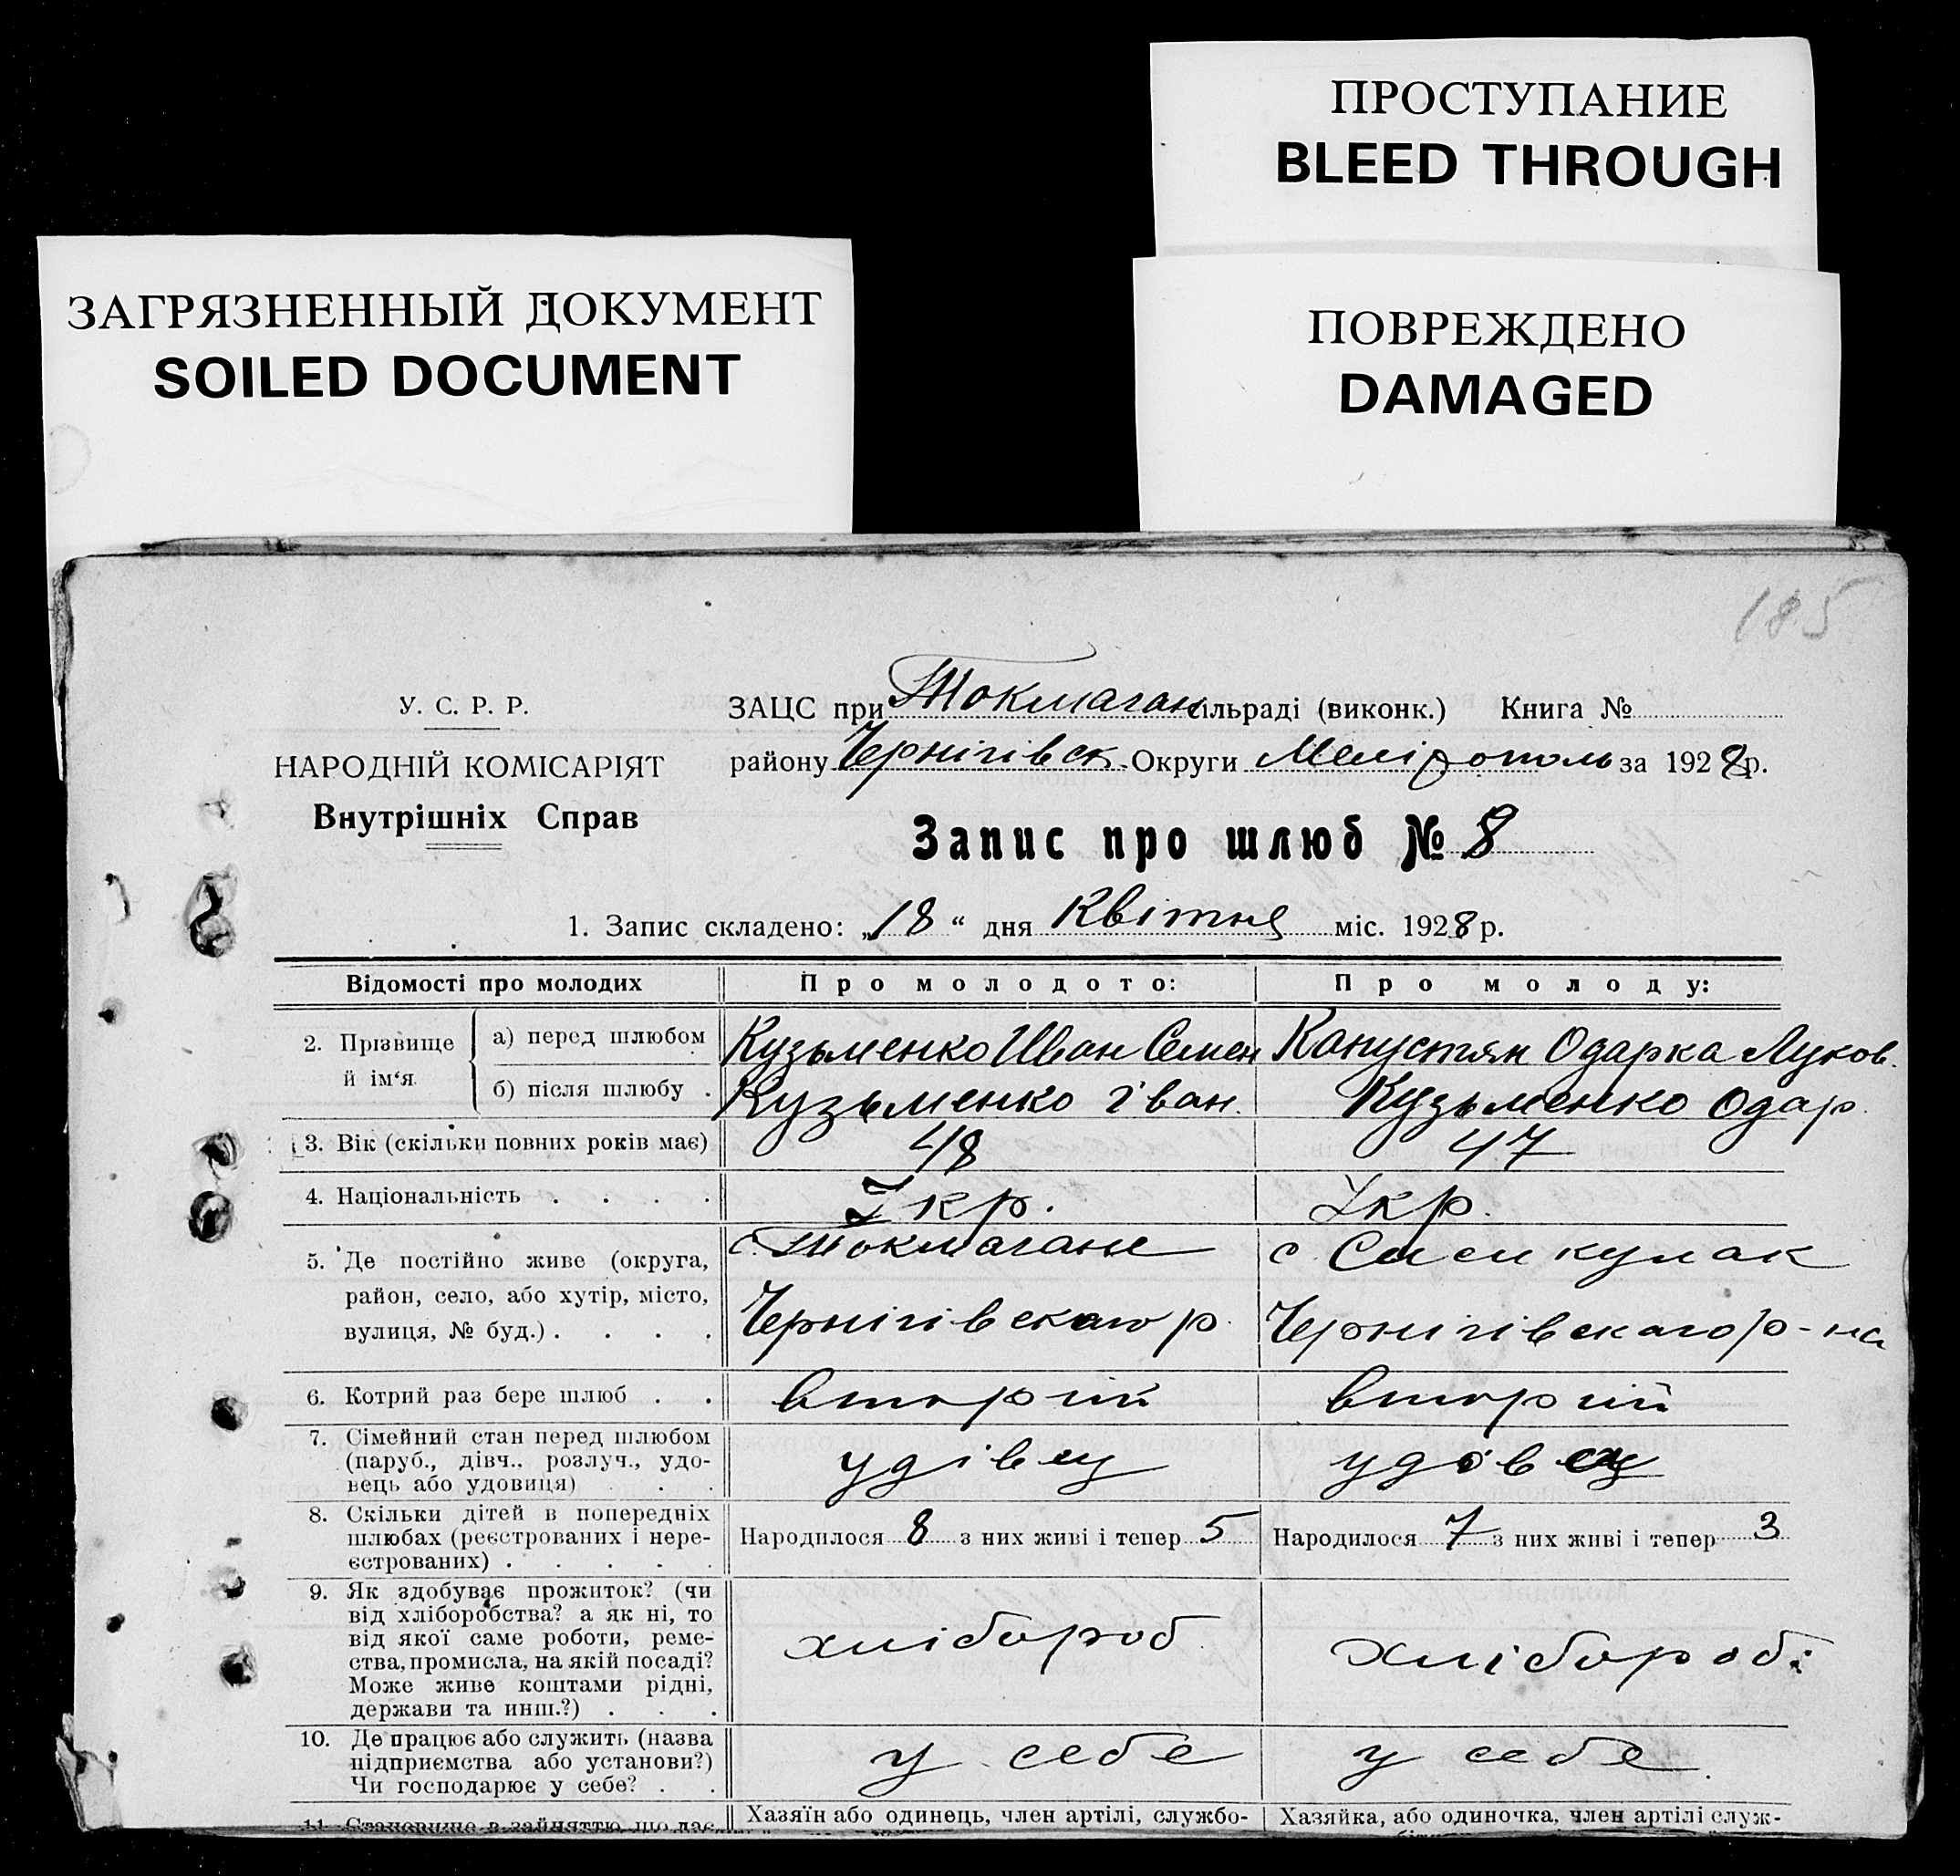 ПРОСТУПАНИЕ
BLEED THROUGH
ЗАГРЯЗНЕННЫЙ ДОКУМЕНТ
SOILED DOCUMENT
ПОВРЕЖДЕНО
DAMAGED
185
У. С. Р. Р.
НАРОДНІЙ КОМІСАРІЯТ
Внутрішніх Справ
ЗАЦС при Токмаган сільраді (виконк.) Книга №
району Чернігівск. Округи Мелітополь за 1928 р.
Запис про шлюб № 8
1. Запис складено: „18“ дня Квітня міс. 1928 р.
Відомості про молодих
Про молодого:
Про молоду:
2. Прізвище й ім'я
а) перед шлюбом
Кузьменко Иван Семен
Капустян Одарка Луков.
б) після шлюбу .
Кузьменко Іван.
Кузьменко Одар.
3. Вік (скільки повних років має)
48
47
4. Національність . . . .
Укр.
Укр.
5. Де постійно живе (округа,
район, село, або хутір, місто,
вулиця, № буд.) . . . .
с. Токмагане
Чернігівскаго р.
с.
Чернігівскаго р-на
6. Котрий раз бере шлюб . .
вторий
вторий
7. Сімейний стан перед шлюбом
(паруб., дівч.. розлуч., удо-
вець або удовиця) . . .
удівец
8. Скільки дітей в попередніх
шлюбах (реєстрованих і нере-
єстрованих) . . . . .
Народилося 8 з них живі і тепер 5
Народилося 7 з них живі і тепер 3
9. Як здобуває прожиток? (чи
від хліборобства? а як ні, то
від якої саме роботи, реме-
ства, промисла, на якій посаді?
Може живе коштами рідні,
держави та инш.?) . . .
хлібороб
хлібороб.
10. Де працює або служить (назва
підприємства або установи?)
Чи господарює у себе? . .
у себе
у себе.
11. Становище в зайняттю, що дає
Хазяїн або одинець, член артілі, службо-
Хазяйка, або одиночка, член артілі служ-